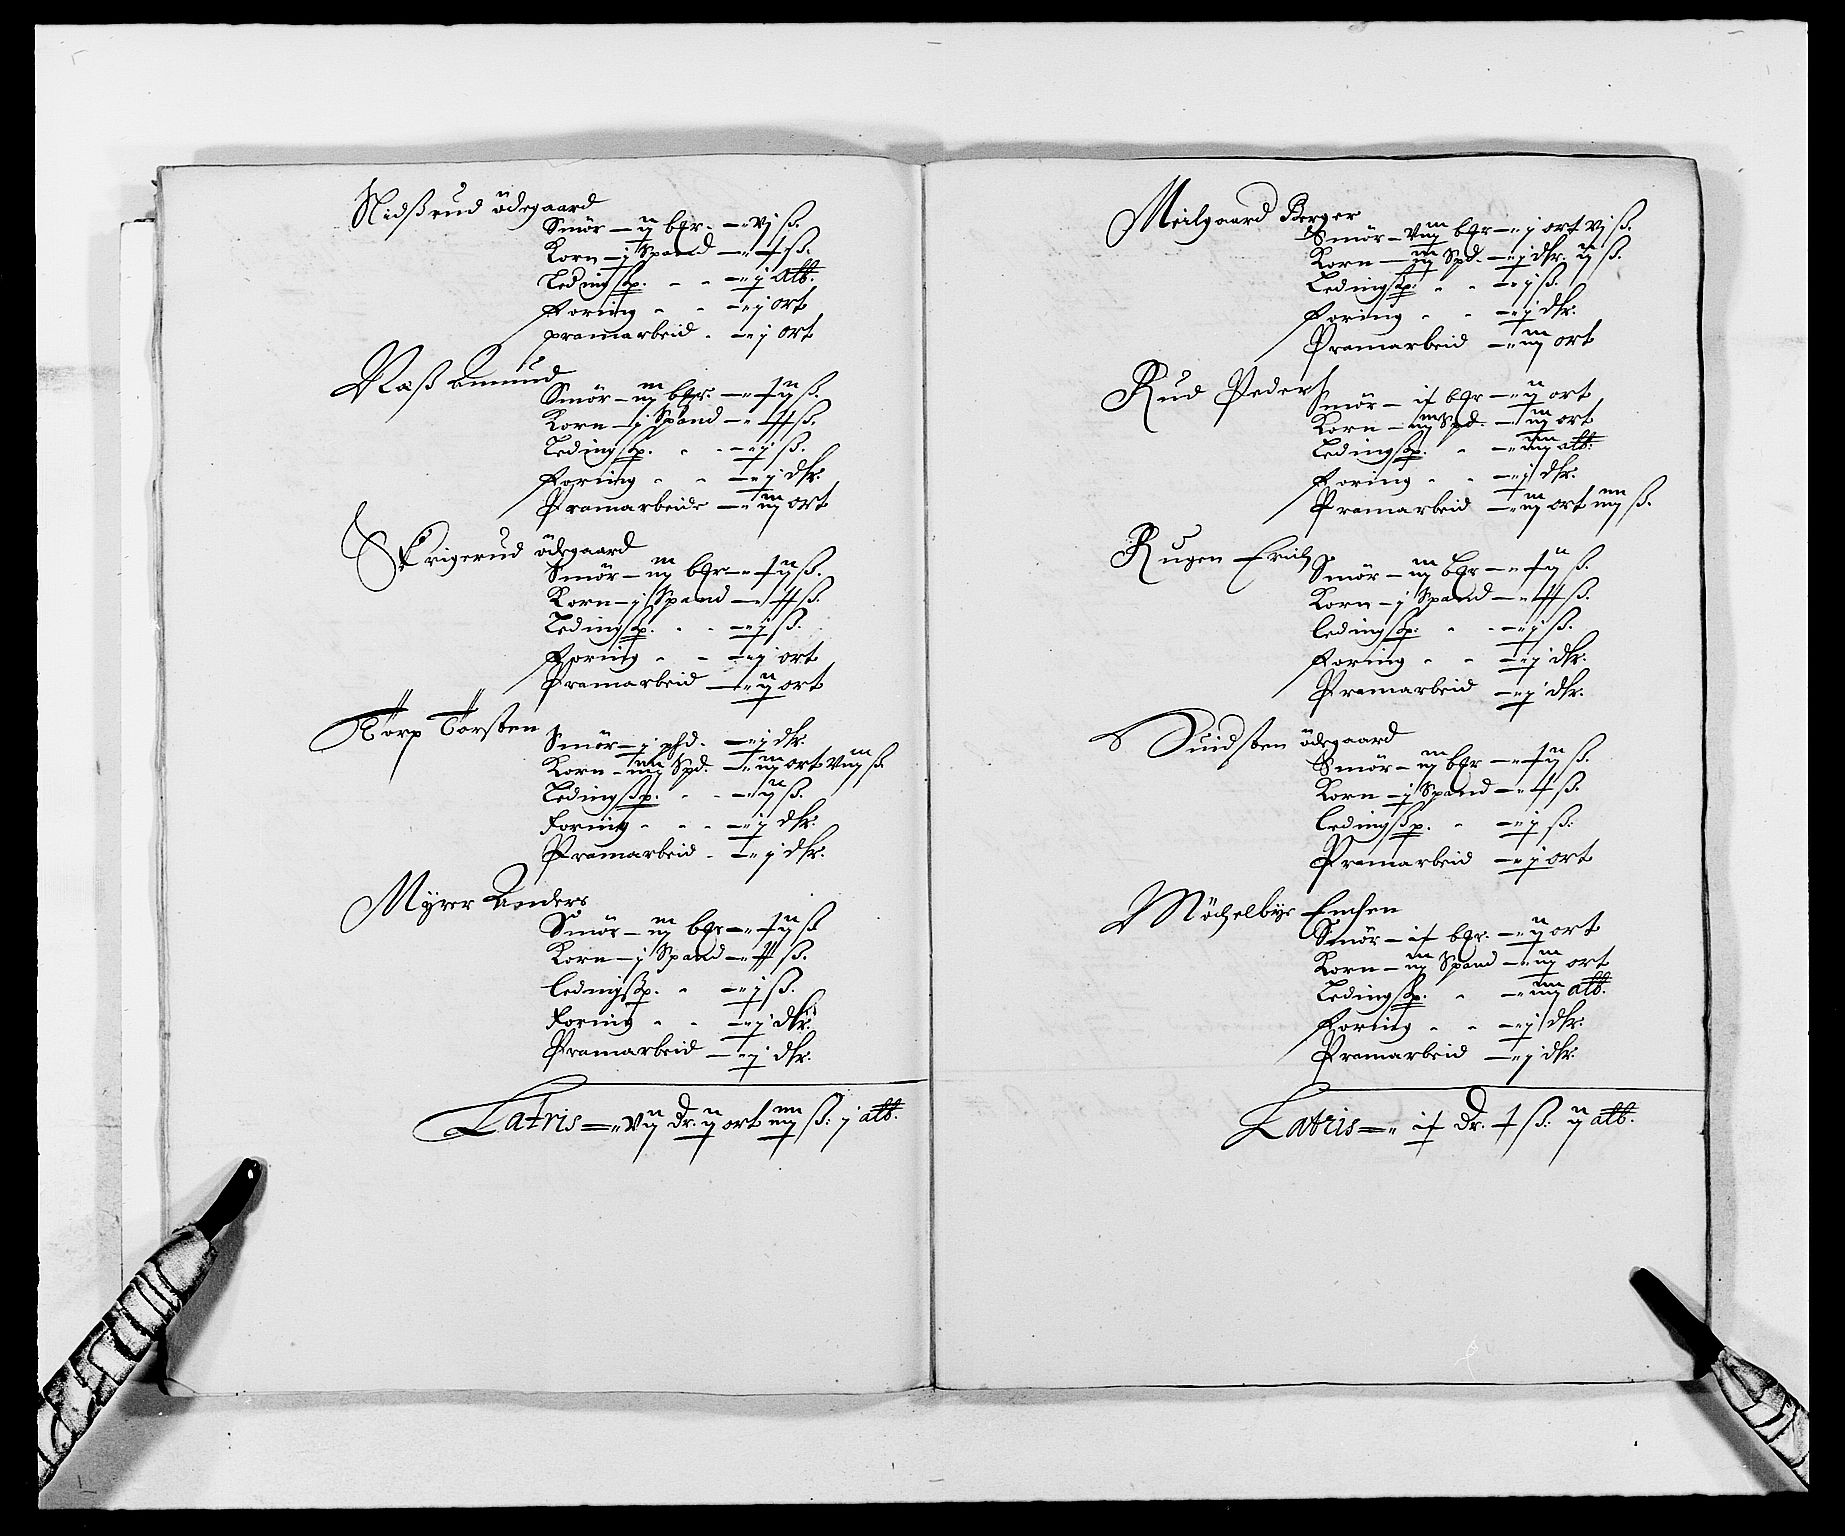 Nidßrud ödegaard
Smör – ij bfr. – " vj ß.
Korn – j Spand – " ß.
Ledingßp. – " j alb.
Foring – " j ort
pramarbeid – " j ort
Raß Amund
Smör – iij bfr. – " xij ß.
Korn – j Spand – " ß.
Ledingßp. – " j ß.
Foring – " j dlr.
Pramarbeide – " iij ort
Skrigerud ödegaard
Smör – iij bfr – " xij ß.
Korn – j Spand – " ß.
Ledingßp. – " j ß.
Foring – " j ort
Pramarbeid – " ij ort
Torp Torsten
Smör – j pfd. – " j dlr.
Korn – iiij Spd. – " iij ort viij ß
Ledingßp. – " ij ß.
Foring – " j dlr.
Pramarbeid – " j dlr.
Myrer Anders
Smör – iij bfr – " xij ß
Korn – j Spand – " ß.
ledingßp. – " j ß.
Foring – " j dlr.
Pramarbeid – " j dlr.
Latris = " vij dr. ij ort iiij ß: j alb.
Meilgaard Berger
Smör – viij bfr – " j ort vj ß.
Korn – iij Spd. – " j dlr. ij ß.
Ledingßp. – " j ß.
Foring – " j dlr.
Pramarbeid – " iij ort
Rud Peder
Smör – ix bfr – " ij ort
Korn – iij Spd. – " iij ort
Ledingßp. – " iiij alb.
Foring – " j dlr.
Pramarbeid – " iij ort iiij ß.
Rugen Erich
Smör – iij bfr – " xij ß.
Korn – j Spand – " ß.
ledingßp. – " j ß.
Foring – " j dlr.
Pramarbeid – " j dlr.
Suidsten ödegaard
Smör – iij bfr – " xij ß.
Korn – j Spand – " ß.
ledingßp. – " j ß:
Pramarbeid – " j ort
Möchelbye
Smör – ix bfr. – " ij ort
Korn – iij Spand – " iij ort
Ledingßp. – " iiij alb.
Foring – " j dlr.
Pramarbeid – " j dlr.
Latris = " ix dr. x ß: ij alb.